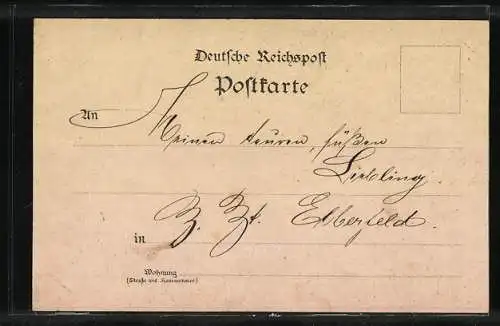 Deutsche Reichspost
Postkarte
An Meinen teuren, süßen
Liebling.
in Z. Zt. Elberfeld.
Wohnung
(Straße und Hausnummer)